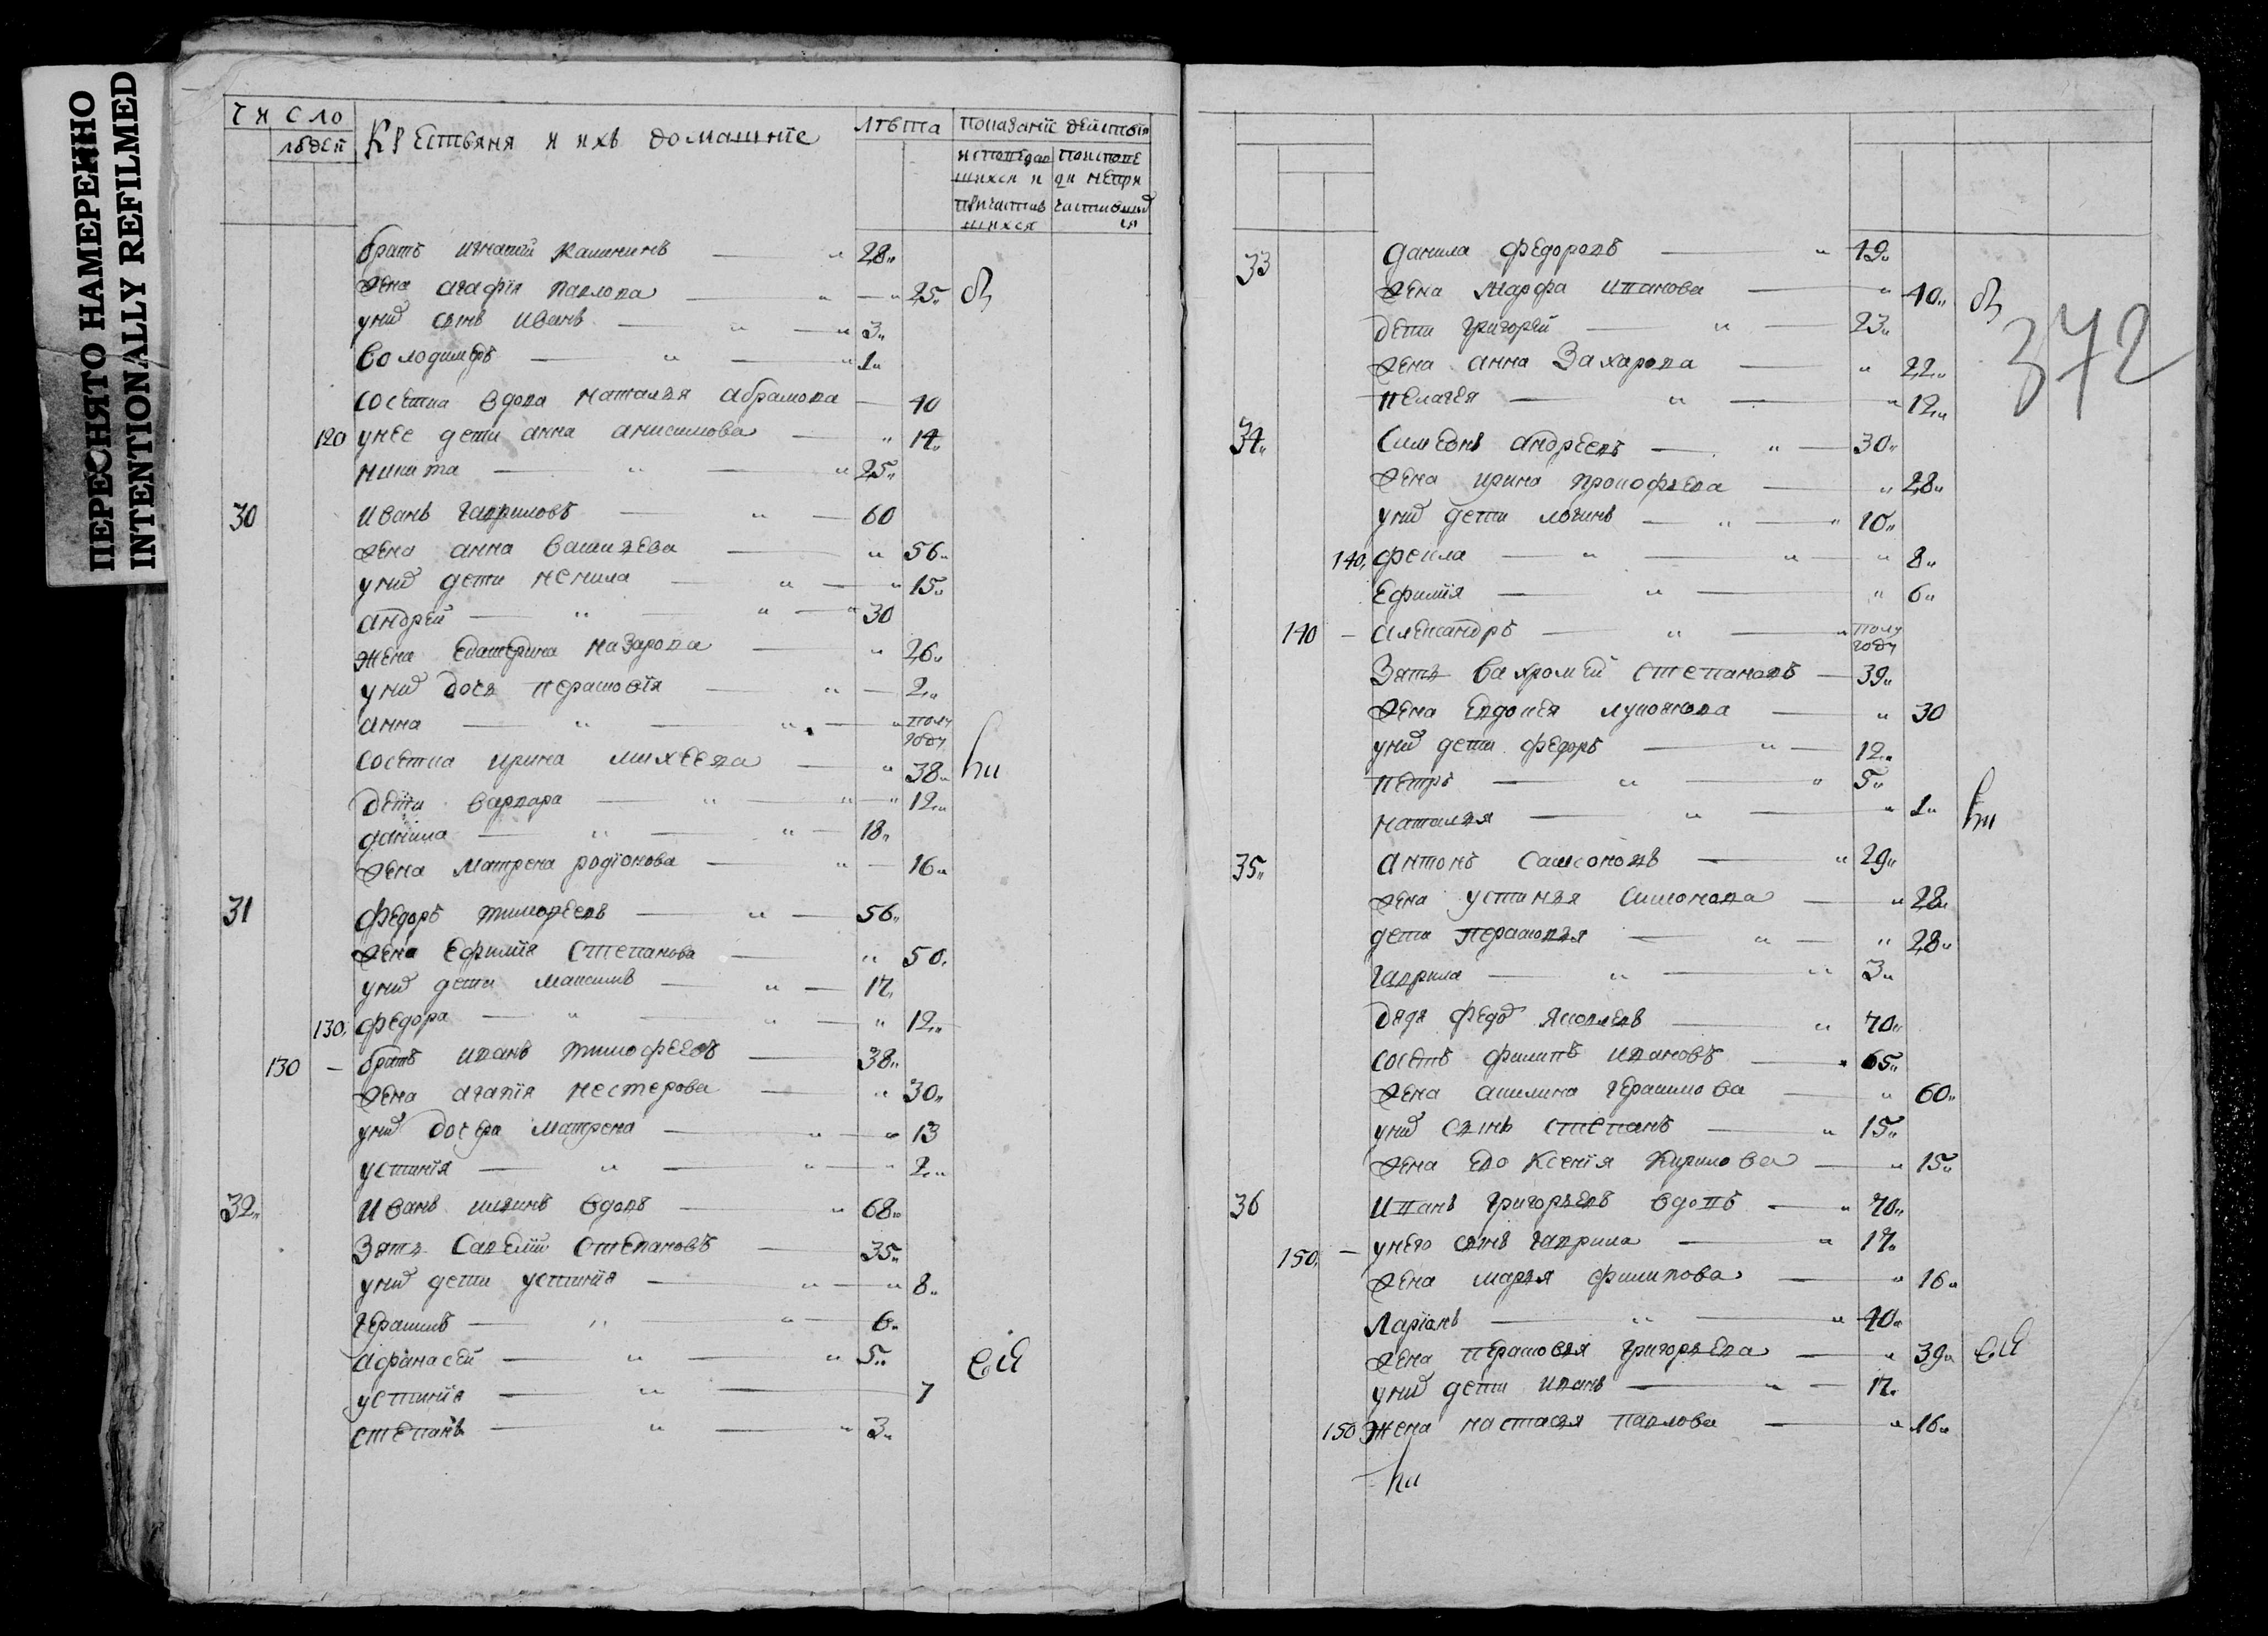 ПЕРЕСНЯТО НАМЕРЕННО
INTENTIONALLY REFILMED
Число
людей
Крестьяня и ихъ домашніе
Лѣта
Показаніе действъ
исповедав
шихся и
причастив
шихся
по испове
ди непри
частивших
ся
братъ Игнатій Калининъ 28
жена Агафія Павлова 25
у них сынъ Иванъ 3
Володимеръ 1
соседка вдова Наталья Абрамова 40
120 у нее дети Анна Анисимова 14
Никита 25
30 Иванъ Гавриловъ 60
жена Анна Васильева 56
у них дети Ненила 15
Андрей 30
жена Екатерина Назарова 26
у них дочь Парасковія 2
Анна полу году
соседка Ирина Михеева 38
дети Варвара 12
Данила 18
жена Матрена Родіонова 16
31 Федоръ Тимофеевъ 56
жена Ефимія Степанова 50
у них дети Максимъ 17
130 Федора 12
130 братъ Иванъ Тимофеевъ 38
жена Агапія Нестерова 30
у них дочера Матрена 13
Устинія 2
32 Иванъ вдовъ 68
Зять Савелій Степановъ 35
у них дети Устинія 8
Герасимъ 6
Афанасей 5
Устинія 7
Степанъ 3
372
33 Данила Федоровъ 49
жена Марфа Иванова 40
дети Григорей 23
жена Анна Захарова 22
Пелагея 12
34 Симеонъ Андреевъ 30
жена Ирина Прокофьева 28
у них дети Логинъ 10
140 Фекла 8
Ефимія 6
140 Александръ полу году
Зять Вахромей Степановъ 39
жена Евдокея 30
у них дети Федоръ 12
Петръ 5
Наталья 1
35 Антонъ Самсоновъ 29
жена Устинья Симонова 28
дети Парасковья 28
Гаврила 3
дядя Федо Яковлевъ 70
соседъ Филипъ Ивановъ 65
жена Акилина Герасимова 60
у них сынъ Степанъ 15
жена ево Ксенія Кирилова 15
36 Иванъ Григорьевъ вдовъ 70
150 у него сынъ Гаврила 17
жена Марья Филипова 16
Ларіонъ 40
жена Парасковья Григорьева 39
у них дети Иванъ 17
150 жена Настасья Павлова 16